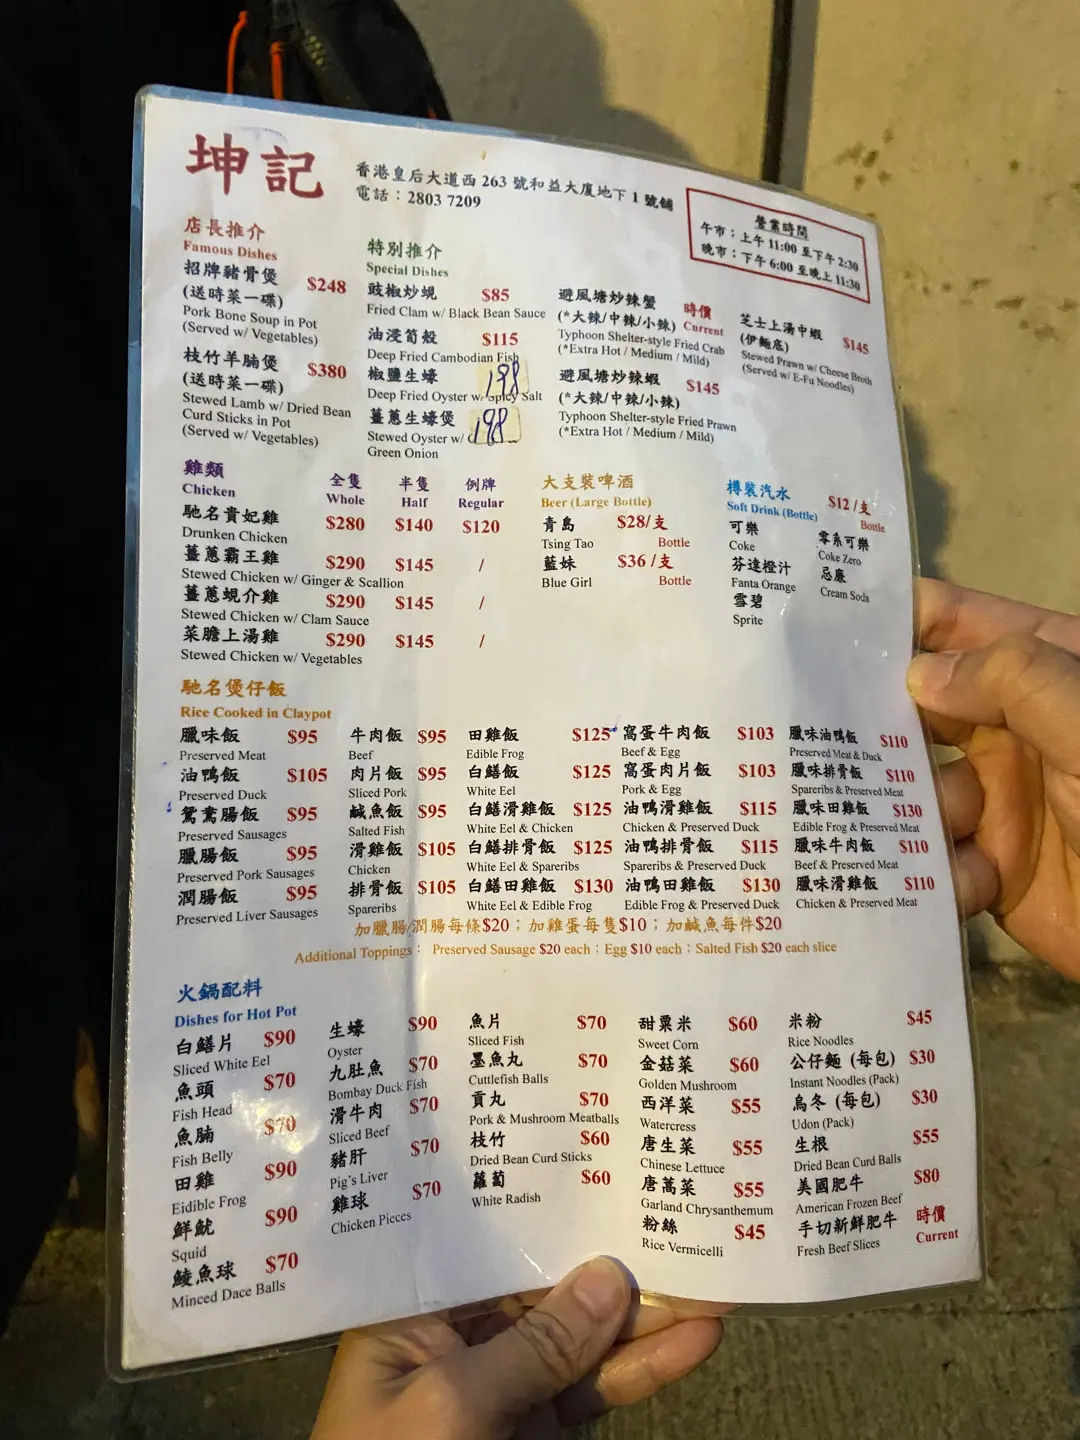 坤記
香港皇后大道西 263 號和益大廈地下 1 號舖
電話：2803 7209
營業時間
午市：上午 11:00 至下午 2:30
晚市：下午 6:00 至晚上 11:30
店長推介
Famous Dishes
招牌豬骨煲 $248
(送時菜一碟)
Pork Bone Soup in Pot
(Served w/ Vegetables)
枝竹羊腩煲 $380
(送時菜一碟)
Stewed Lamb w/ Dried Bean
Curd Sticks in Pot
(Served w/ Vegetables)
特別推介
Special Dishes
豉椒炒蜆 $85
Fried Clam w/ Black Bean Sauce
油浸筍殼 $115
Deep Fried Cambodian Fish
椒鹽生蠔 198
Deep Fried Oyster w/ Spicy Salt
薑蔥生蠔煲 198
Stewed Oyster w/
Green Onion
避風塘炒辣蟹 時價
(*大辣/中辣/小辣) Current
Typhoon Shelter-style Fried Crab
(*Extra Hot / Medium / Mild)
避風塘炒辣蝦 $145
(*大辣/中辣/小辣)
Typhoon Shelter-style Fried Prawn
(*Extra Hot / Medium / Mild)
芝士上湯中蝦 $145
(伊麵底)
Stewed Prawn w/ Cheese Broth
(Served w/ E-Fu Noodles)
雞類 全隻 半隻 例牌
Chicken Whole Half Regular
馳名貴妃雞 $280 $140 $120
Drunken Chicken
薑蔥霸王雞 $290 $145 /
Stewed Chicken w/ Ginger & Scallion
薑蔥蜆介雞 $290 $145 /
Stewed Chicken w/ Clam Sauce
菜膽上湯雞 $290 $145 /
Stewed Chicken w/ Vegetables
大支裝啤酒
Beer (Large Bottle)
青島 $28/支
Tsing Tao Bottle
藍妹 $36 /支
Blue Girl Bottle
樽裝汽水 $12 /支
Soft Drink (Bottle) Bottle
可樂
Coke
芬達橙汁
Fanta Orange
雪碧
Sprite
零系可樂
Coke Zero
忌廉
Cream Soda
馳名煲仔飯
Rice Cooked in Claypot
臘味飯 $95
Preserved Meat
油鴨飯 $105
Preserved Duck
鴛鴦腸飯 $95
Preserved Sausages
臘腸飯 $95
Preserved Pork Sausages
潤腸飯 $95
Preserved Liver Sausages
牛肉飯 $95
Beef
肉片飯 $95
Sliced Pork
鹹魚飯 $95
Salted Fish
滑雞飯 $105
Chicken
排骨飯 $105
Spareribs
田雞飯 $125
Edible Frog
白鱔飯 $125
White Eel
白鱔滑雞飯 $125
White Eel & Chicken
白鱔排骨飯 $125
White Eel & Spareribs
白鱔田雞飯 $130
White Eel & Edible Frog
窩蛋牛肉飯 $103
Beef & Egg
窩蛋肉片飯 $103
Pork & Egg
油鴨滑雞飯 $115
Chicken & Preserved Duck
油鴨排骨飯 $115
Spareribs & Preserved Duck
油鴨田雞飯 $130
Edible Frog & Preserved Duck
臘味油鴨飯 $110
Preserved Meat & Duck
臘味排骨飯 $110
Spareribs & Preserved Meat
臘味田雞飯 $130
Edible Frog & Preserved Meat
臘味牛肉飯 $110
Beef & Preserved Meat
臘味滑雞飯 $110
Chicken & Preserved Meat
加臘腸/潤腸每條$20；加雞蛋每隻$10；加鹹魚每件$20
Additional Toppings： Preserved Sausage $20 each；Egg $10 each；Salted Fish $20 each slice
火鍋配料
Dishes for Hot Pot
白鱔片 $90
Sliced White Eel
魚頭 $70
Fish Head
魚腩 $70
Fish Belly
田雞 $90
Eidible Frog
鮮魷 $90
Squid
鯪魚球 $70
Minced Dace Balls
生蠔 $90
Oyster
九肚魚 $70
Bombay Duck Fish
滑牛肉 $70
Sliced Beef
豬肝 $70
Pig's Liver
雞球 $70
Chicken Pieces
魚片 $70
Sliced Fish
墨魚丸 $70
Cuttlefish Balls
貢丸 $70
Pork & Mushroom Meatballs
枝竹 $60
Dried Bean Curd Sticks
蘿蔔 $60
White Radish
甜粟米 $60
Sweet Corn
金菇菜 $60
Golden Mushroom
西洋菜 $55
Watercress
唐生菜 $55
Chinese Lettuce
唐蒿菜 $55
Garland Chrysanthemum
粉絲 $45
Rice Vermicelli
米粉 $45
Rice Noodles
公仔麵 (每包) $30
Instant Noodles (Pack)
烏冬 (每包) $30
Udon (Pack)
生根 $55
Dried Bean Curd Balls
美國肥牛 $80
American Frozen Beef
手切新鮮肥牛 時價
Fresh Beef Slices Current